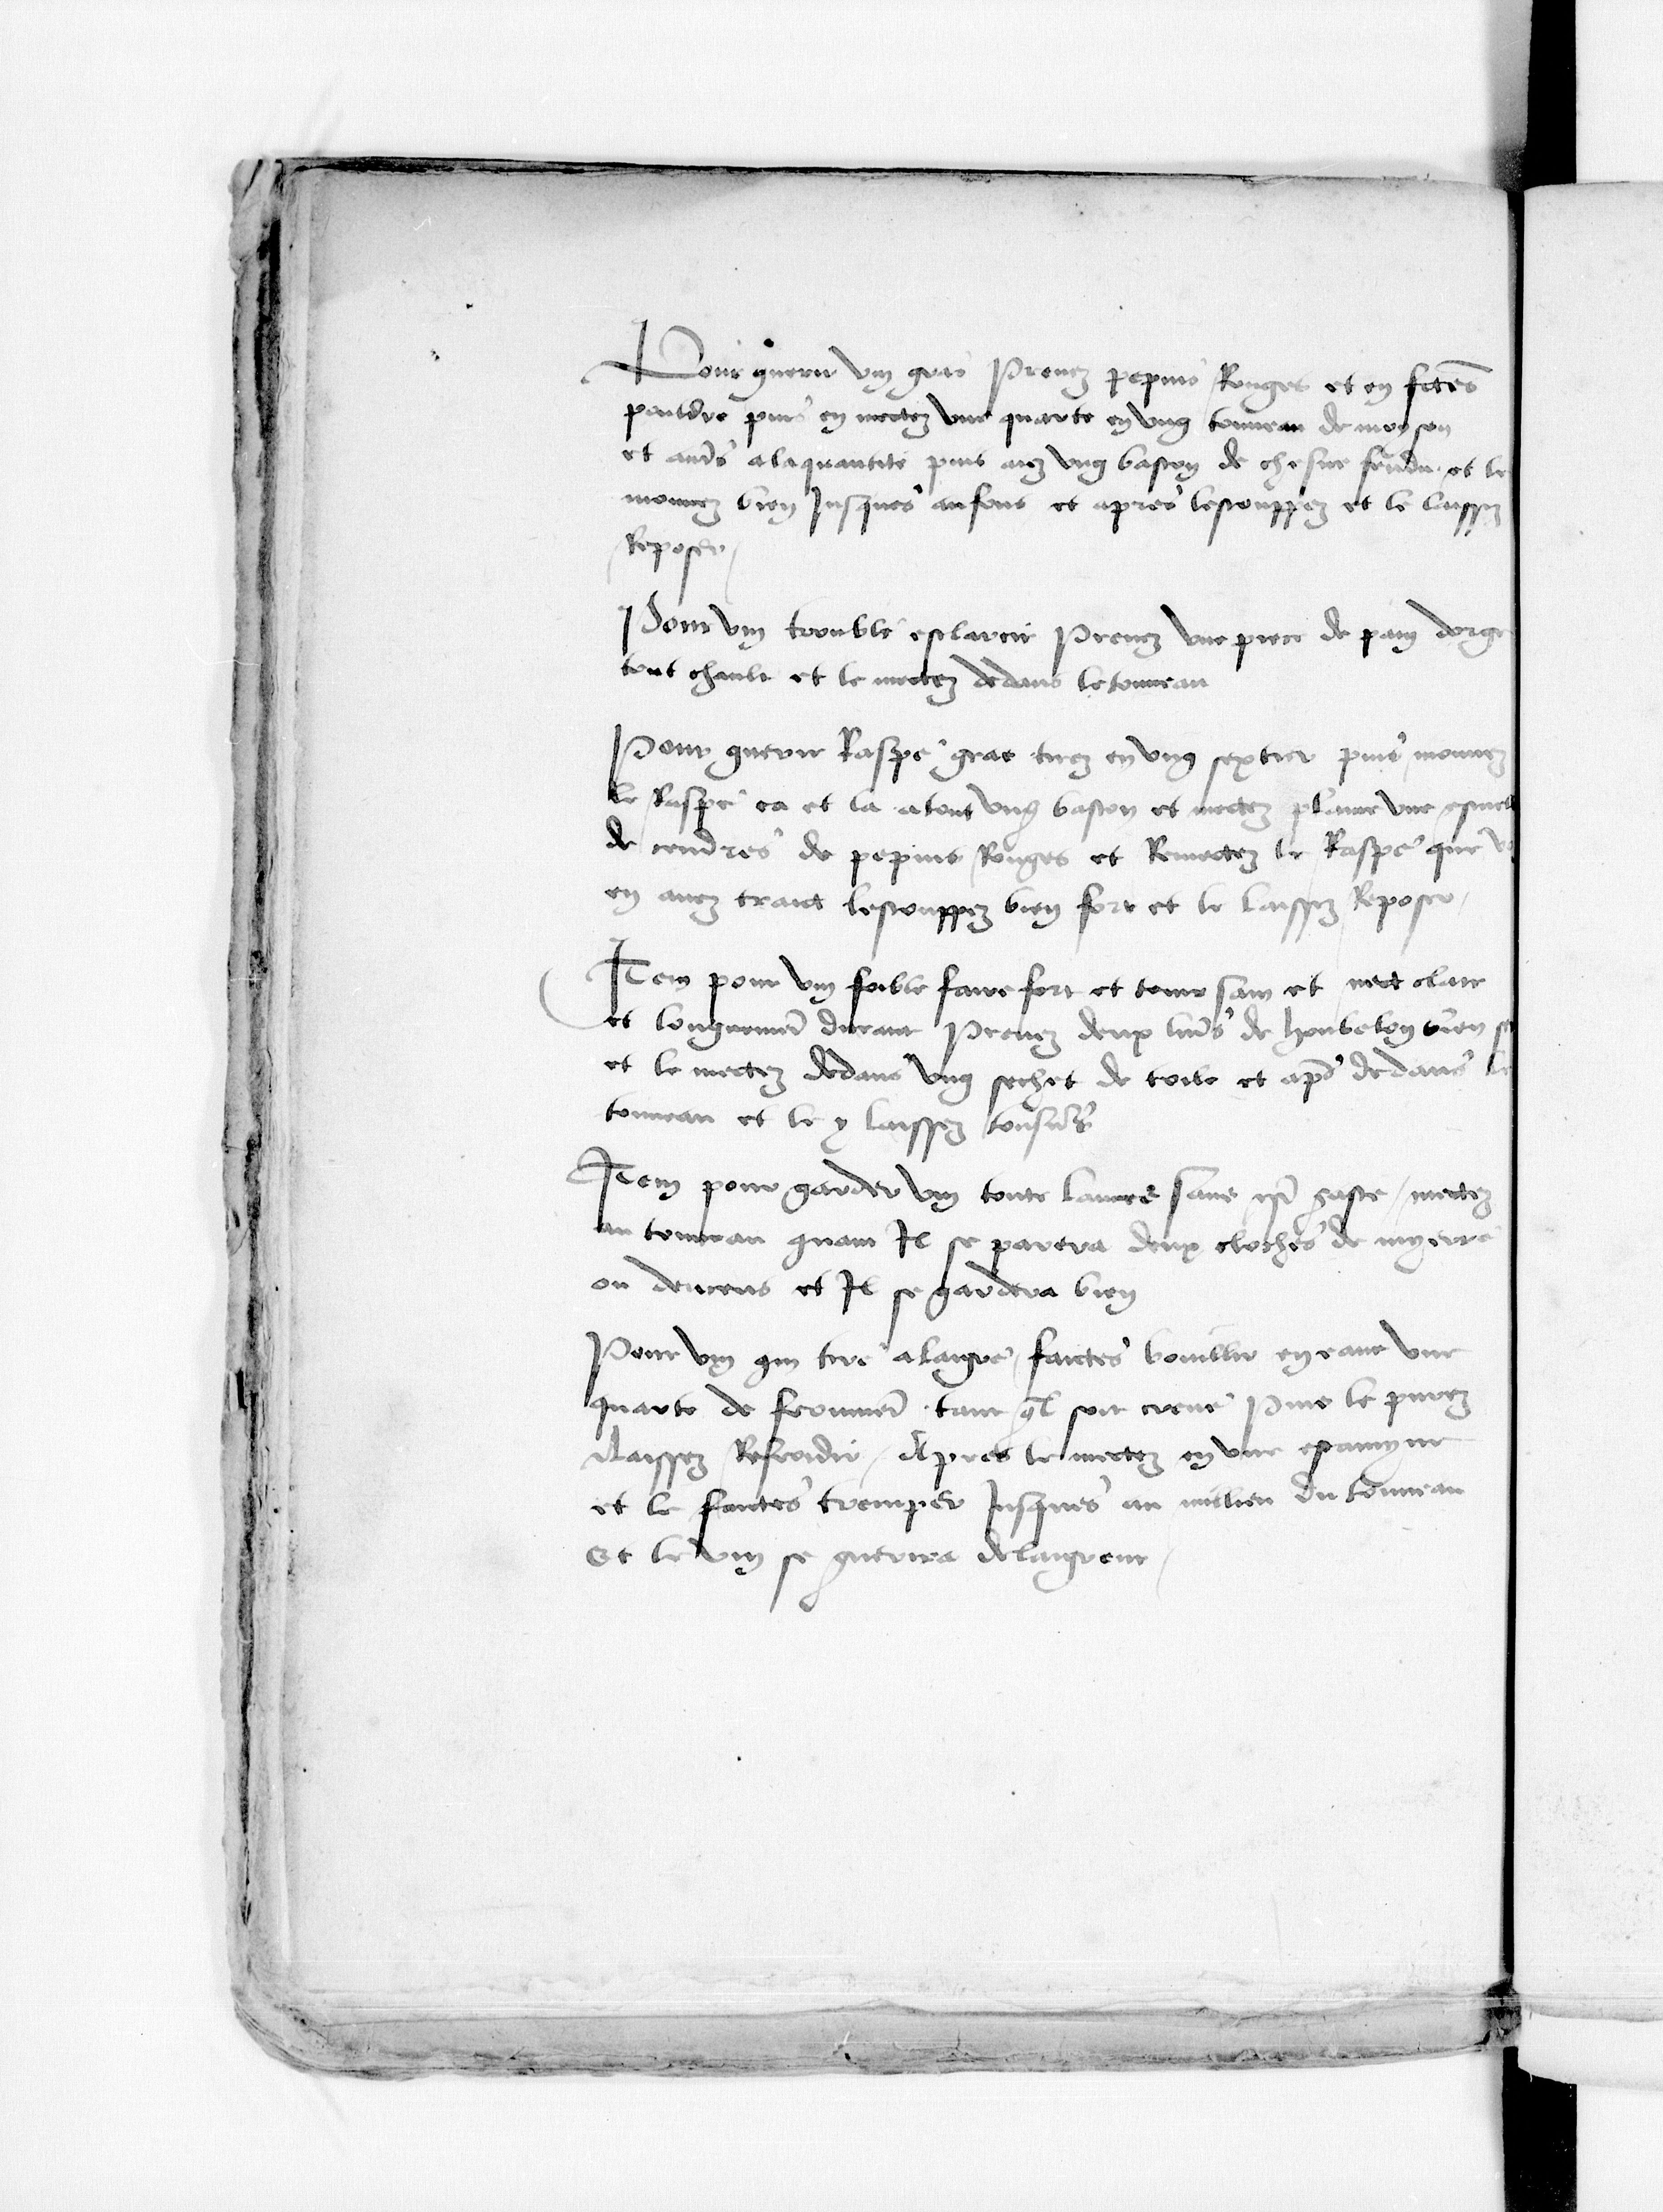 Pour guerir vin gras Prenez pepins Rouges et en fctes
pouldre puis en mectez vne quarte en vng tonneau de moyson
et aut̃s a la quantite puis aiez vng baston de chesne fendu et le
mouuez bien Jusques au fons et apres lestouppez et le laissez
Reposer /
Pour vin trouble esclarcir Prenez vne piece de pain dorge
tout chault et le mectez dedans le tonneau
Pour guerir Raspe gras tirez en vng sextier puis mouuez
le Raspe ca et la atout vng baston et mectez plaine vne escuel
de cendres de pepins Rouges et Remectez le Raspe que vo
en auez traict lestouppez bien fort et le laissez Reposer /
Item pour vin foible faire fort et tenir sain et nect clair
et longuemẽt durant Prenez deux liur̃s de houbelon bien se
et le mectez dedans vng sechet de toile et ap̃s dedans le
tonneau et le y laissez tousiẽs
Item pour garder vin toute lannee sans est̃ gaste / mectez
au tonneau quant Il se parera deux cloches de
ou dencens et Il se gardera bien
Pour vin qui tire a laigre / faictes bouillir en eaue vne
quarte de froumẽt tant ql̃ soit creue Puis le purez
laissez Refroidir / Apres le mectez en vne
et le faictes tremper Jusques au millieu du tonneau
Et le vin se guerira de laigreur /